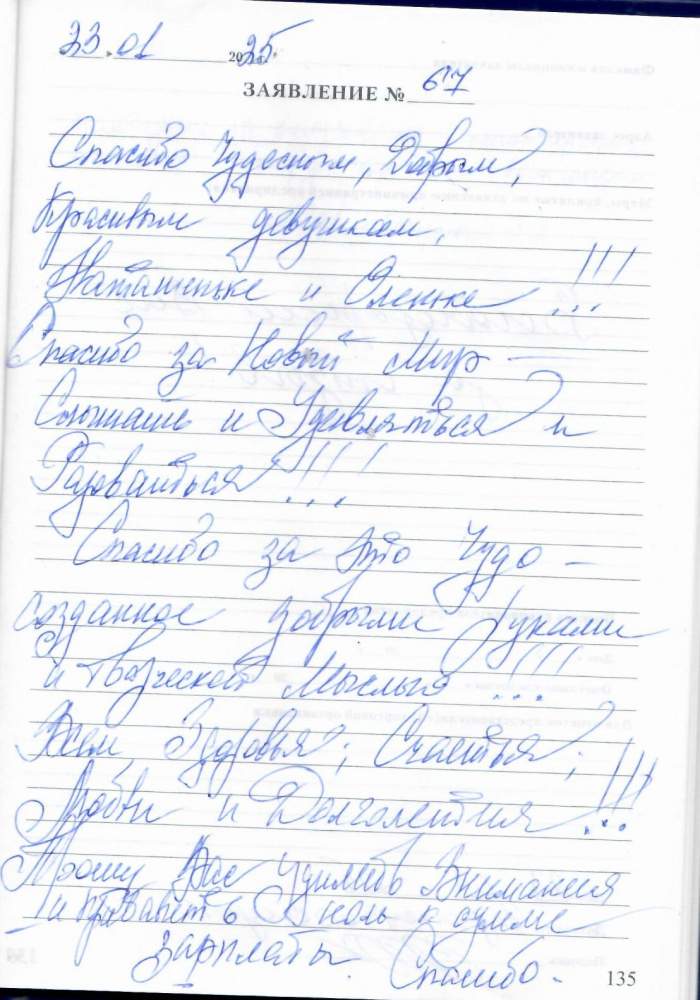 23.01 2025.
ЗАЯВЛЕНИЕ № 67
Спасибо Чудесным, Добрым,
Красивым девушкам,
Наташеньке и Оленьке !!!
Спасибо за Новый Мир —
Слышать и Удивляться и
Радоваться !!!
Спасибо за это Чудо —
созданное добрыми Руками
и Творческой Мыслью !!!
Всем Здоровья, Счастья,
Любви и Долголетия !!!
Прошу Вас Уделить Внимания
и прибавить 0 ноль к сумме
зарплаты. Спасибо.
135